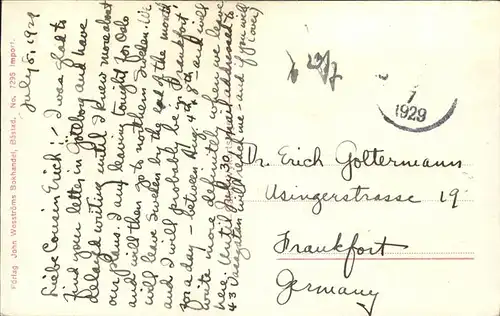 July 5, 1929
Liebe Cousin Erich! - I was glad to
find your letter in Göteborg and have
delayed writing until I knew more about
our plans. I am leaving tonight for Oslo
and will then go to northern Sweden. We
will leave Sweden by the end of the month
and I will probably be in Frankfort
for a day - between Aug. 4th & 8th - and will
write more definitely when we leave
here. Until July 30, mail addressed to
43 Vasagatan will reach me - and if you will
Dr. Erich Goltermann
Usingerstrasse 19
Frankfort
Germany
1929
Förlag John Wesströms Bokhandel, Båstad. No. 7296 Import.